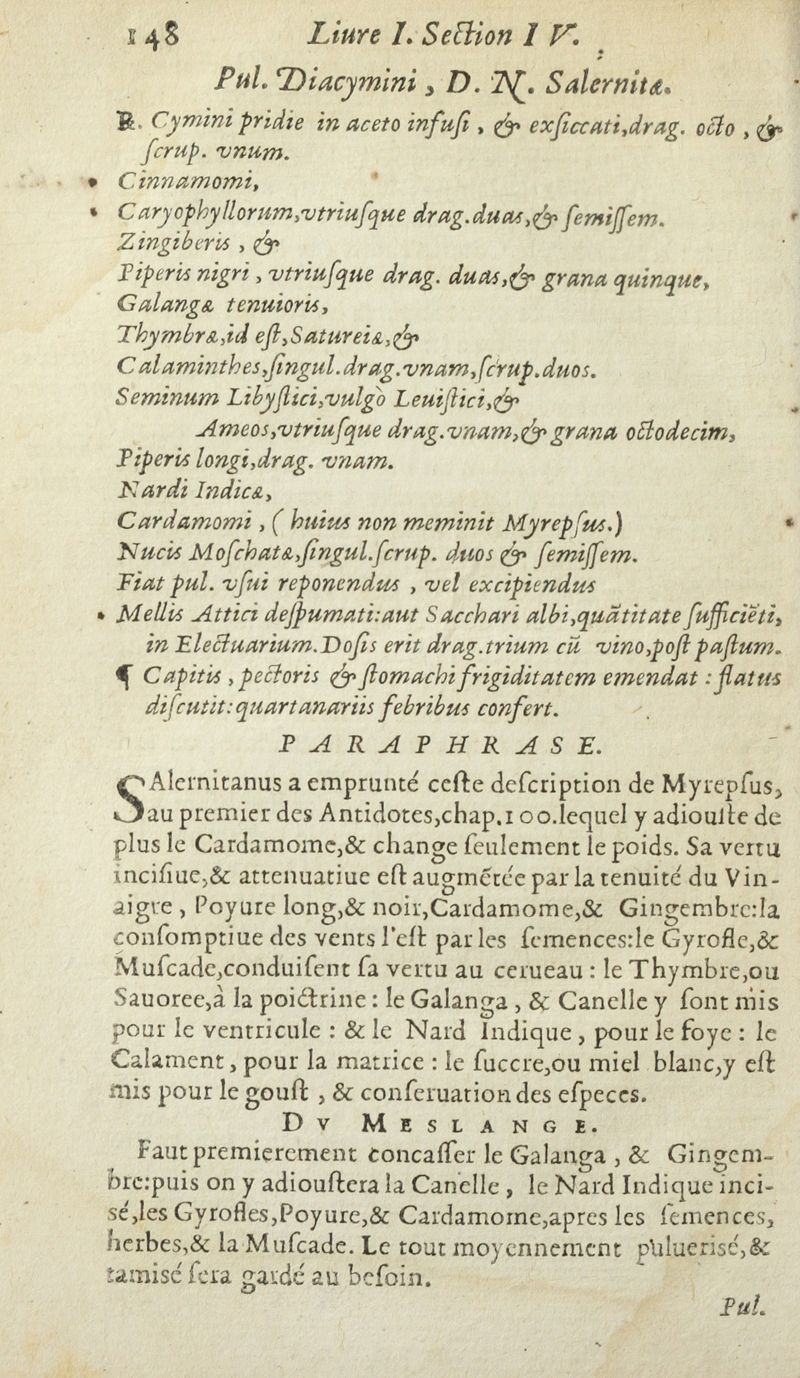 148 Liure I. Section I V.
Pul. Diacymini, D. N. Salernitæ.
℞. Cymini pridie in aceto infuſi, & exſiccati, drag. octo, &
ſcrup. vnum.
Cinnamomi,
Caryophyllorum, vtriuſque drag. duas, & ſemiſſem.
Zingiberis, &
Piperis nigri, vtriuſque drag. duas, & grana quinque,
Galangæ tenuioris,
Thymbræ, id eſt, Satureiæ, &
Calaminthes, ſingul. drag. vnam, ſcrup. duos.
Seminum Libyſtici, vulgò Leuiſtici, &
Ameos, vtriuſque drag. vnam, & grana octodecim,
Piperis longi, drag. vnam.
Nardi Indicæ,
Cardamomi, (huius non meminit Myrepſus.)
Nucis Moſchatæ, ſingul. ſcrup. duos & ſemiſſem.
Fiat pul. vſui reponendus, vel excipiendus
Mellis Attici deſpumati: aut Sacchari albi, quãtitate ſufficiẽti,
in Electuarium. Doſis erit drag. trium cũ vino, poſt paſtum.
¶ Capitis, pectoris & ſtomachi frigiditatem emendat: flatus
diſcutit: quartanariis febribus confert.
PARAPHRASE.
SAlernitanus a emprunté ceſte deſcription de Myrepſus,
au premier des Antidotes, chap. 100. lequel y adiouſte de
plus le Cardamome, & change ſeulement le poids. Sa vertu
inciſiue, & attenuatiue eſt augmẽtée par la tenuité du Vin-
aigre, Poyure long, & noir, Cardamome, & Gingembre: la
conſomptiue des vents l'eſt par les ſemences: le Gyrofle, &
Muſcade, conduiſent ſa vertu au cerueau: le Thymbre, ou
Sauoree, à la poictrine: le Galanga, & Canelle y ſont mis
pour le ventricule: & le Nard Indique, pour le foye: le
Calament, pour la matrice: le ſuccre, ou miel blanc, y eſt
mis pour le gouſt, & conſeruation des eſpeces.
DV MESLANGE.
Faut premierement concaſſer le Galanga, & Gingem-
bre: puis on y adiouſtera la Canelle, le Nard Indique inci-
sé, les Gyrofles, Poyure, & Cardamome, apres les ſemences,
herbes, & la Muſcade. Le tout moyennement puluerisé, &
tamisé ſera gardé au beſoin.
Pul.